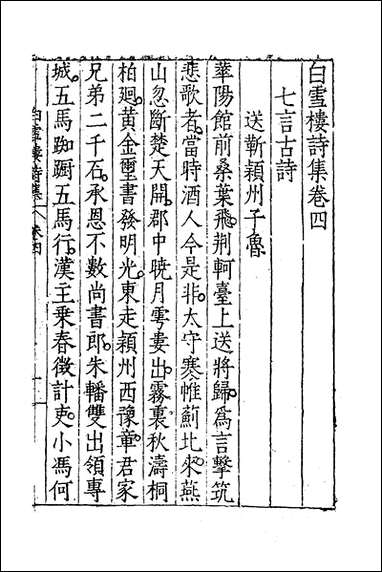 白雪樓詩集卷四
七言古詩
送靳穎州子魯
華陽館前桑葉飛荆軻臺上送將歸爲言擊筑
悲歌者當時酒人今是非太守寒帷薊北來燕
山忽斷楚天開郡中曉月雩婁出霧裏秋濤桐
柏廻黃金璽書發明光東走穎州西豫章君家
兄弟二千石承恩不數尚書郎朱轓雙出領專
城五馬踟蹰五馬行漢主乗春徵計吏小馮何
白雪樓詩集 卷四 一